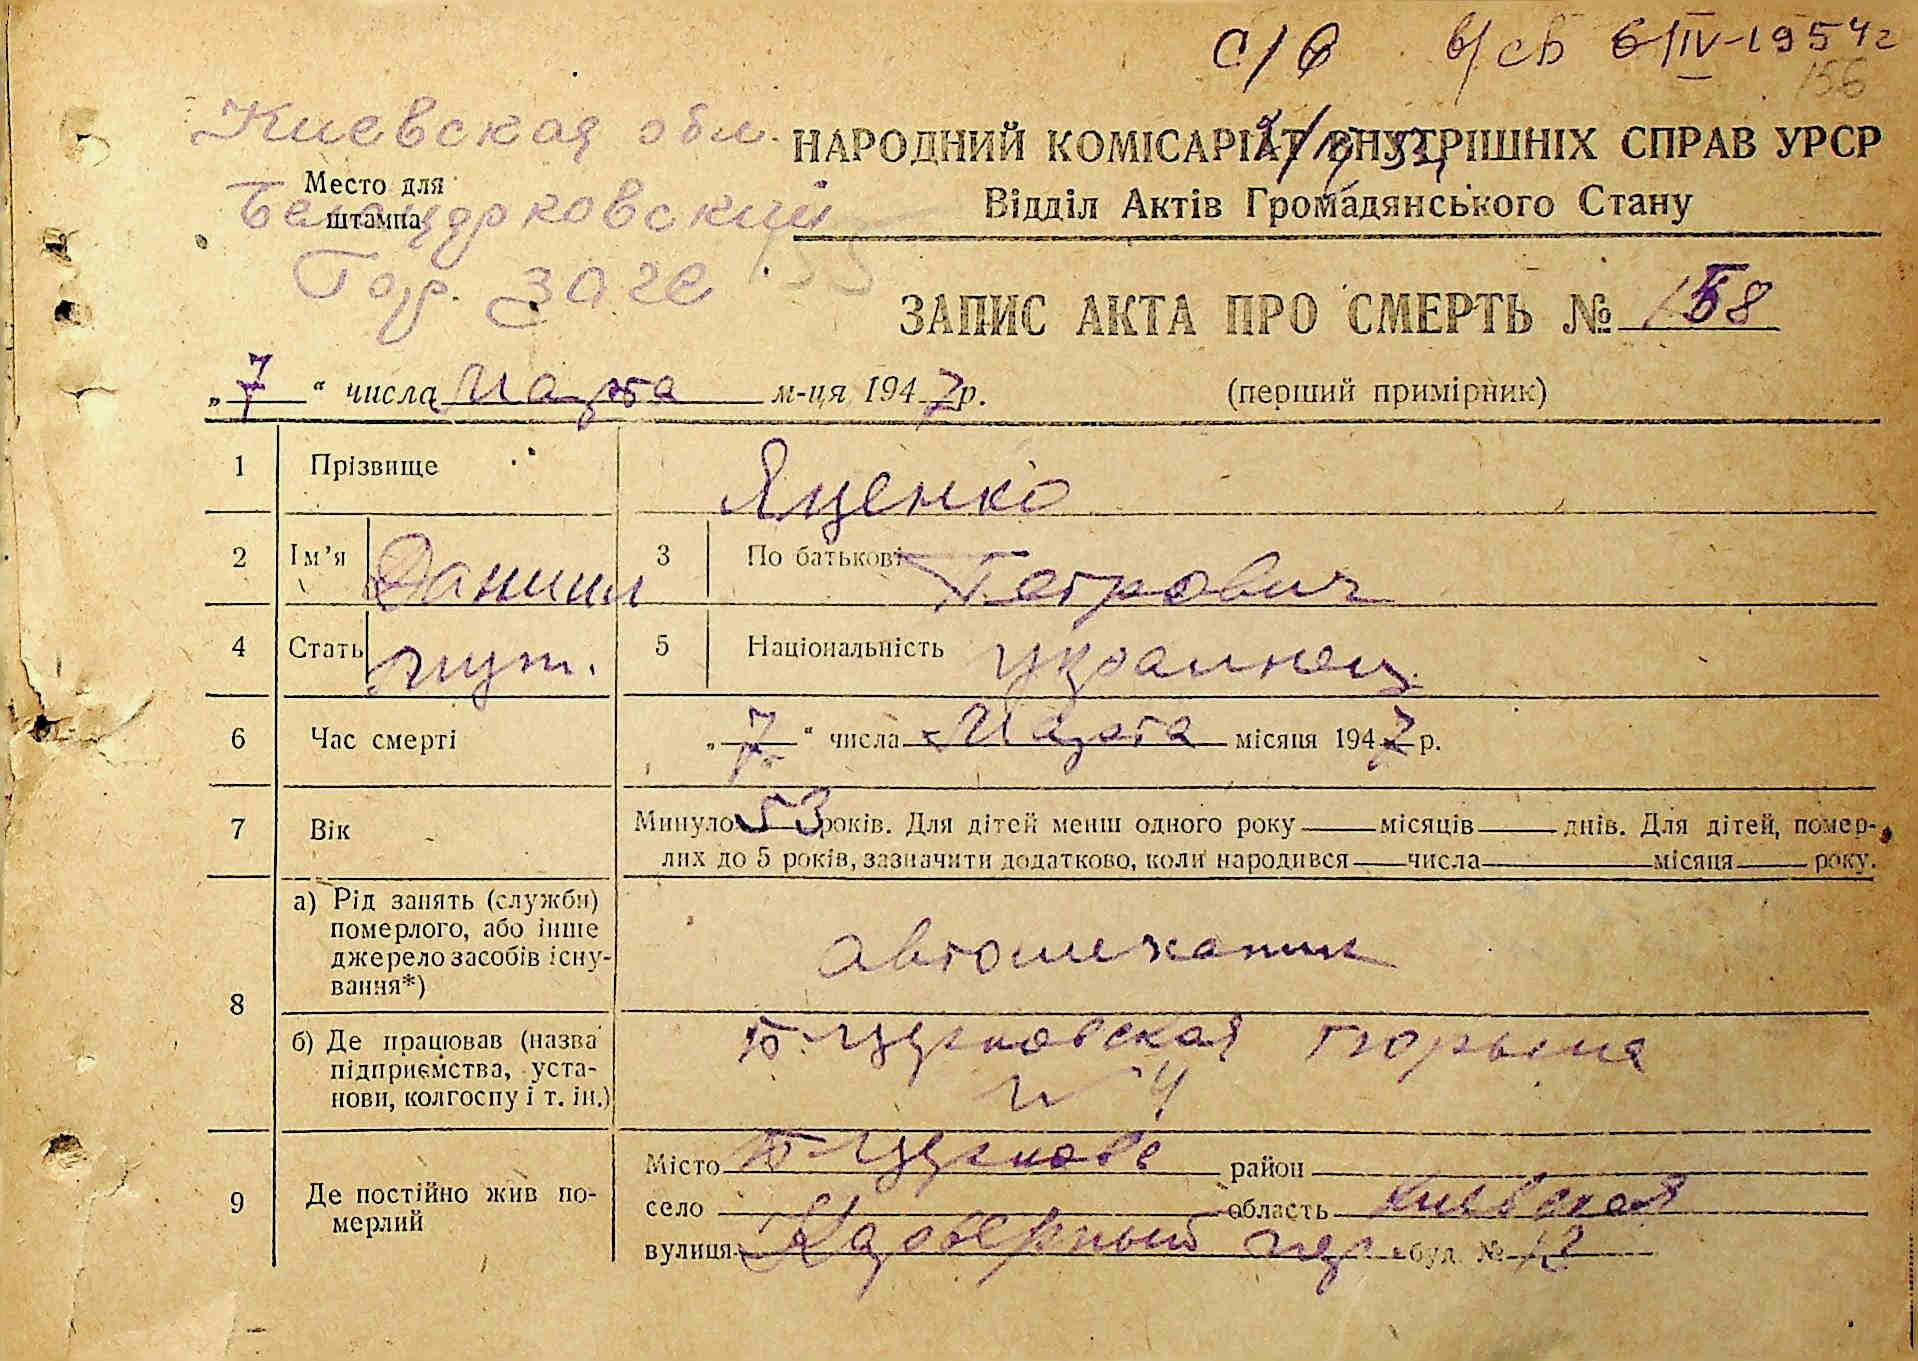 с/в в/сб 6/IV-1954г
156
Киевская обл.
НАРОДНИЙ КОМІСАРІАТ ВНУТРІШНІХ СПРАВ УРСР
Место для штампа
Белоцерковский
Відділ Актів Громадянського Стану
Гор. загс
155
ЗАПИС АКТА ПРО СМЕРТЬ № 158
„7“ числа Марта м-ця 1947р. (перший примірник)
1 Прізвище Яценко
2 Ім'я Даниил 3 По батькові Петрович
4 Стать муж. 5 Національність украинец
6 Час смерті „7“ числа Марта місяця 1947р.
7 Вік Минуло 53 років. Для дітей менш одного року місяців днів. Для дітей, помер-
лих до 5 років, зазначити додатково, коли народився числа місяця року.
8 а) Рід занять (служби)
померлого, або інше
джерело засобів існу-
вання*) автомеханик
б) Де працював (назва
підприємства, уста-
нови, колгоспу і т. ін.) Б-Церковская тюрьма
№ 4
9 Де постійно жив по-
мерлий
Місто Б-Церковь район
село область Киевская
вулиця пер. буд. № 12